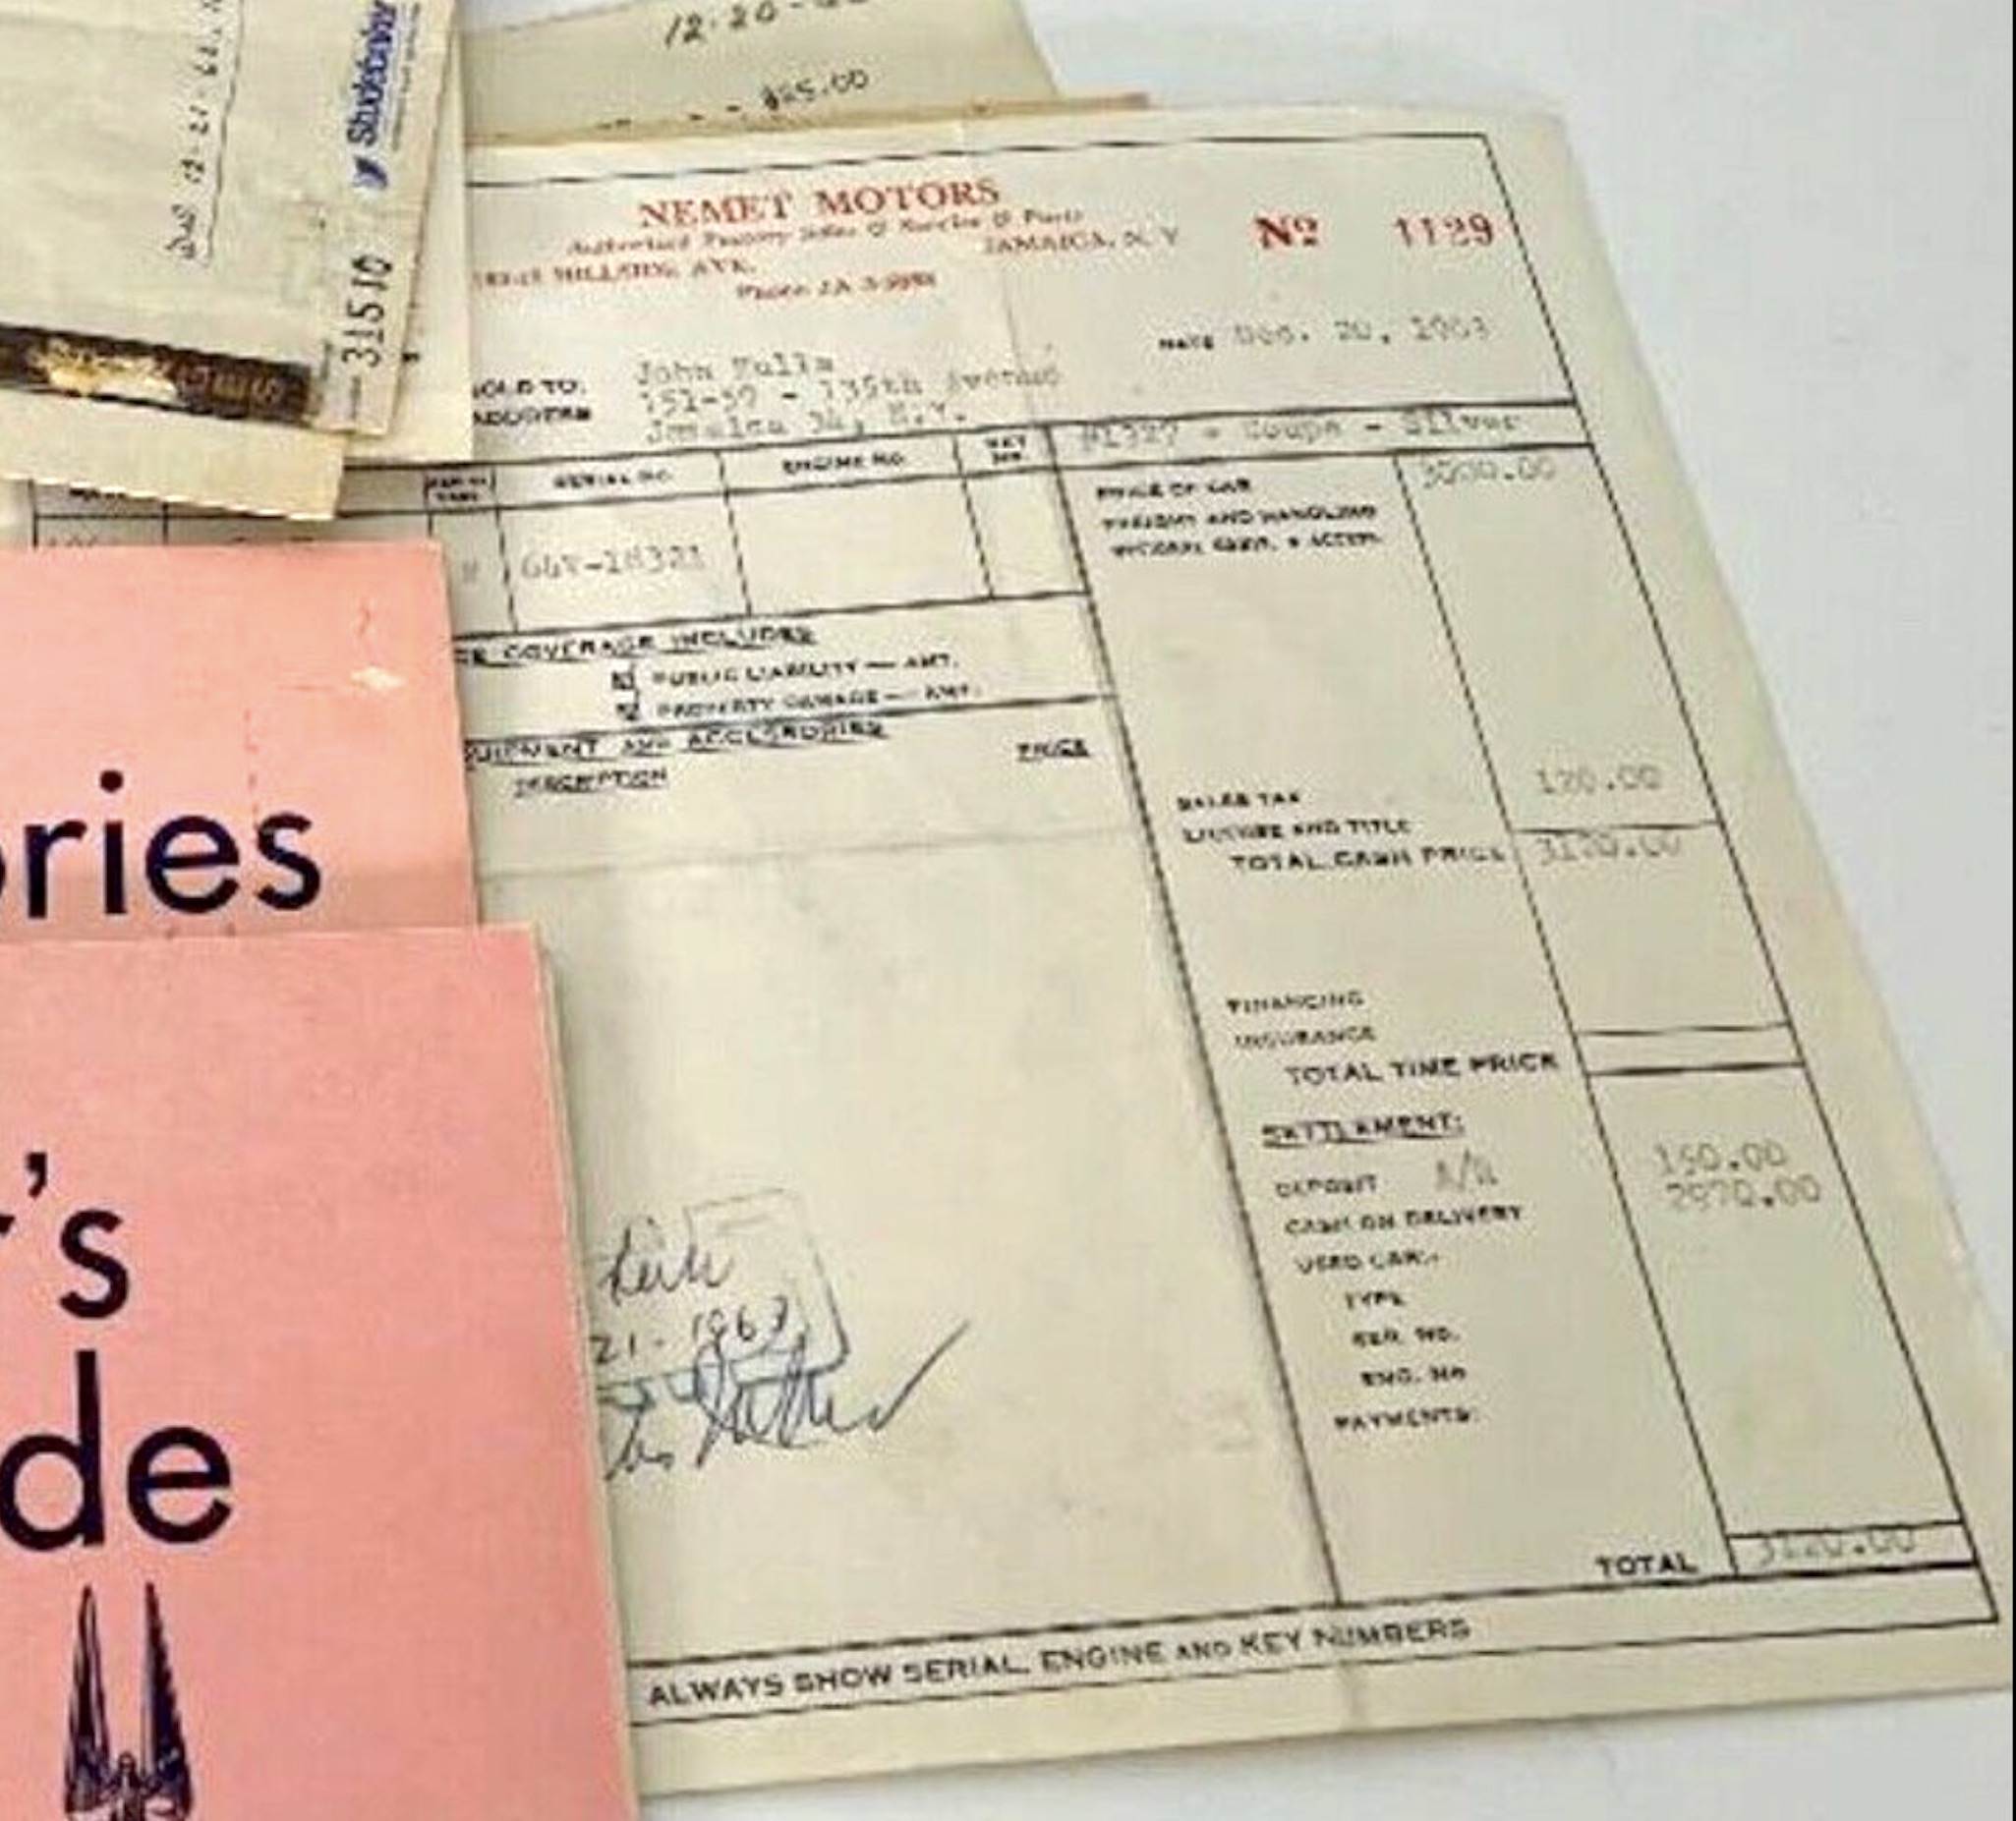 12-20-
$25.00
Studebaker
31510
NEMET MOTORS
Authorized Factory Sales & Service & Parts
HILLSIDE AVE.
JAMAICA, N. Y.
Phone JA 3-
No 1129
DATE Dec. 20, 1963
SOLD TO: John
ADDRESS 151-39 - 135th Avenue
Jamaica 34, N.Y.
#1329 - Coupe - Silver
SERIAL NO. ENGINE NO. KEY NO.
64V-18321
PRICE OF CAR 3000.00
FREIGHT AND HANDLING
OPTIONAL EQUIP. & ACCESS.
COVERAGE INCLUDES
PUBLIC LIABILITY — AMT.
PROPERTY DAMAGE — AMT.
EQUIPMENT AND ACCESSORIES
DESCRIPTION PRICE
SALES TAX 120.00
LICENSE AND TITLE
TOTAL CASH PRICE 3120.00
FINANCING
INSURANCE
TOTAL TIME PRICE
SETTLEMENT:
DEPOSIT 150.00
CASH ON DELIVERY 2970.00
USED CAR:-
TYPE
SER. NO.
ENG. NO.
PAYMENTS:
TOTAL 3120.00
21-1963
ALWAYS SHOW SERIAL, ENGINE AND KEY NUMBERS
ories
r's
de